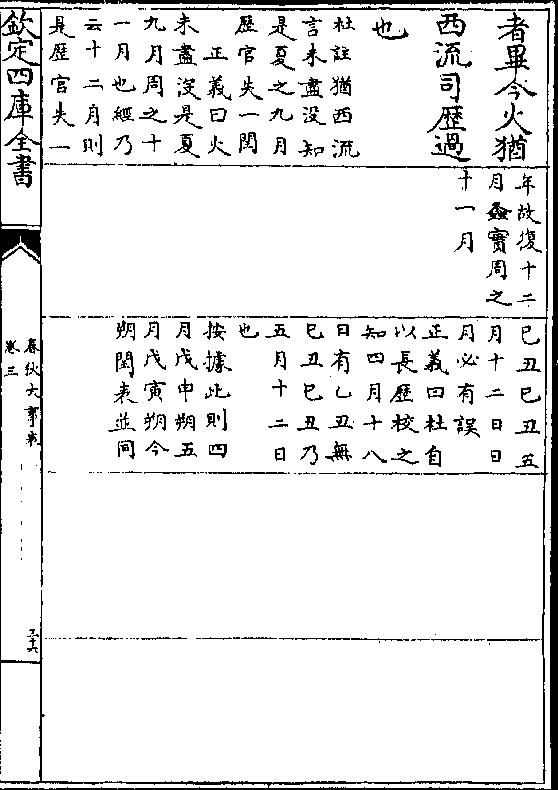 者畢今火猶
西流司歷過
也
杜註猶西流
言未盡没知
是夏之九月
歷官失一閏
正義曰火
未盡沒是夏
九月周之十
一月也經乃
云十二月則
是歷官失一
年故復十二
月螽實周之
十一月
己丑己丑五
月十二日日
月必有誤
正義曰杜自
以長歷校之
知四月十八
日有乙丑無
己丑己丑乃
五月十二日
也
按據此則四
月戊申朔五
月戊寅朔今
朔閏表並同
欽定四庫全書
春秋大事表
卷三
三十六